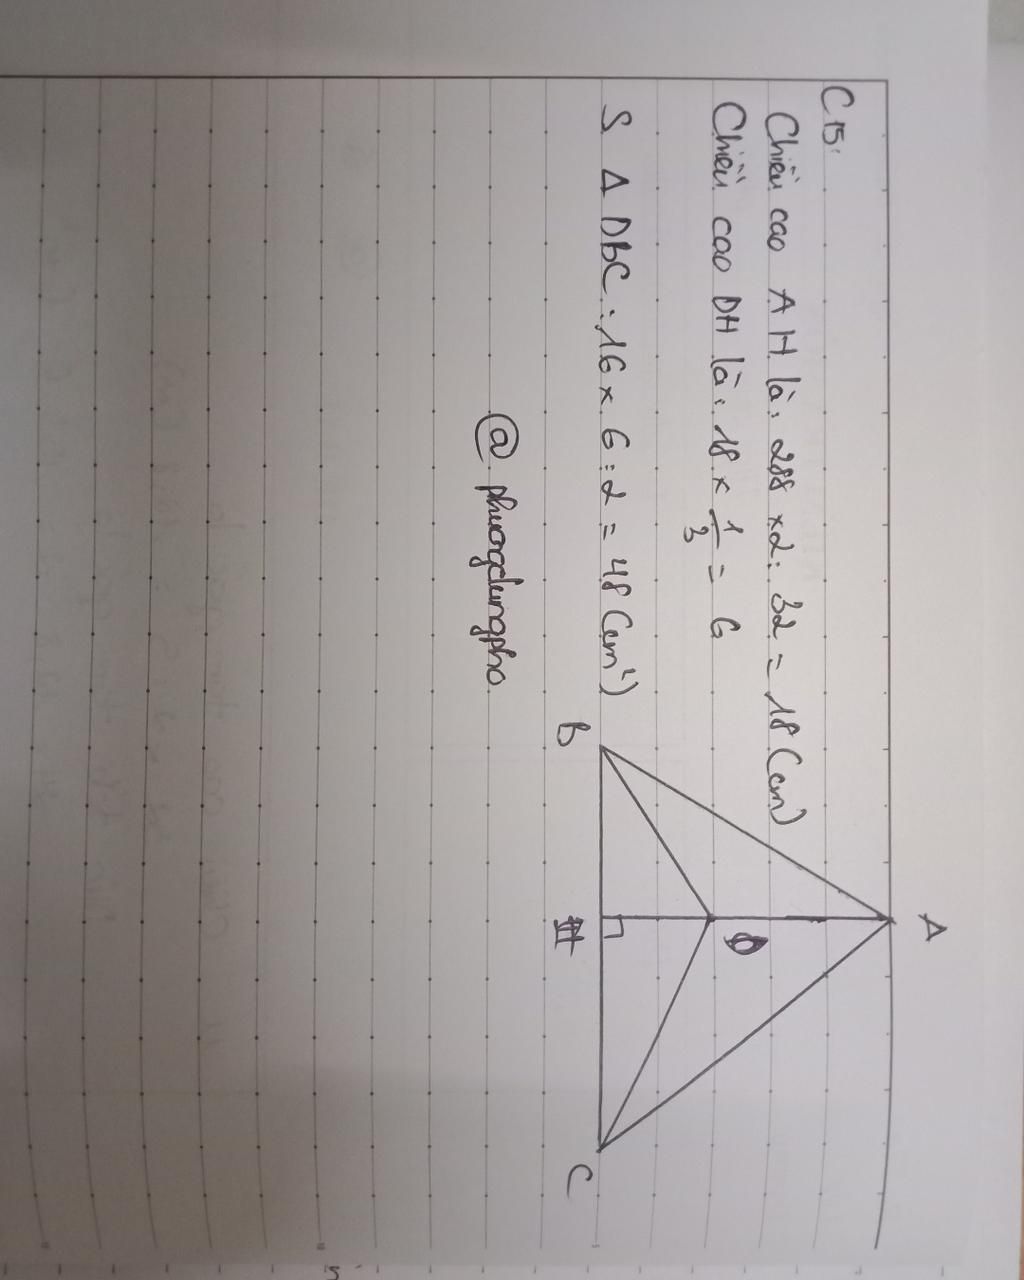 C15:
Chiều cao AH là: 288 x2: 32 = 18 (cm)
Chiều cao DH là: 18 x 1/3 = 6
S Δ DBC: 16 x 6 : 2 = 48 (cm²)
@ phuongdungpho
A
B
D
H
C